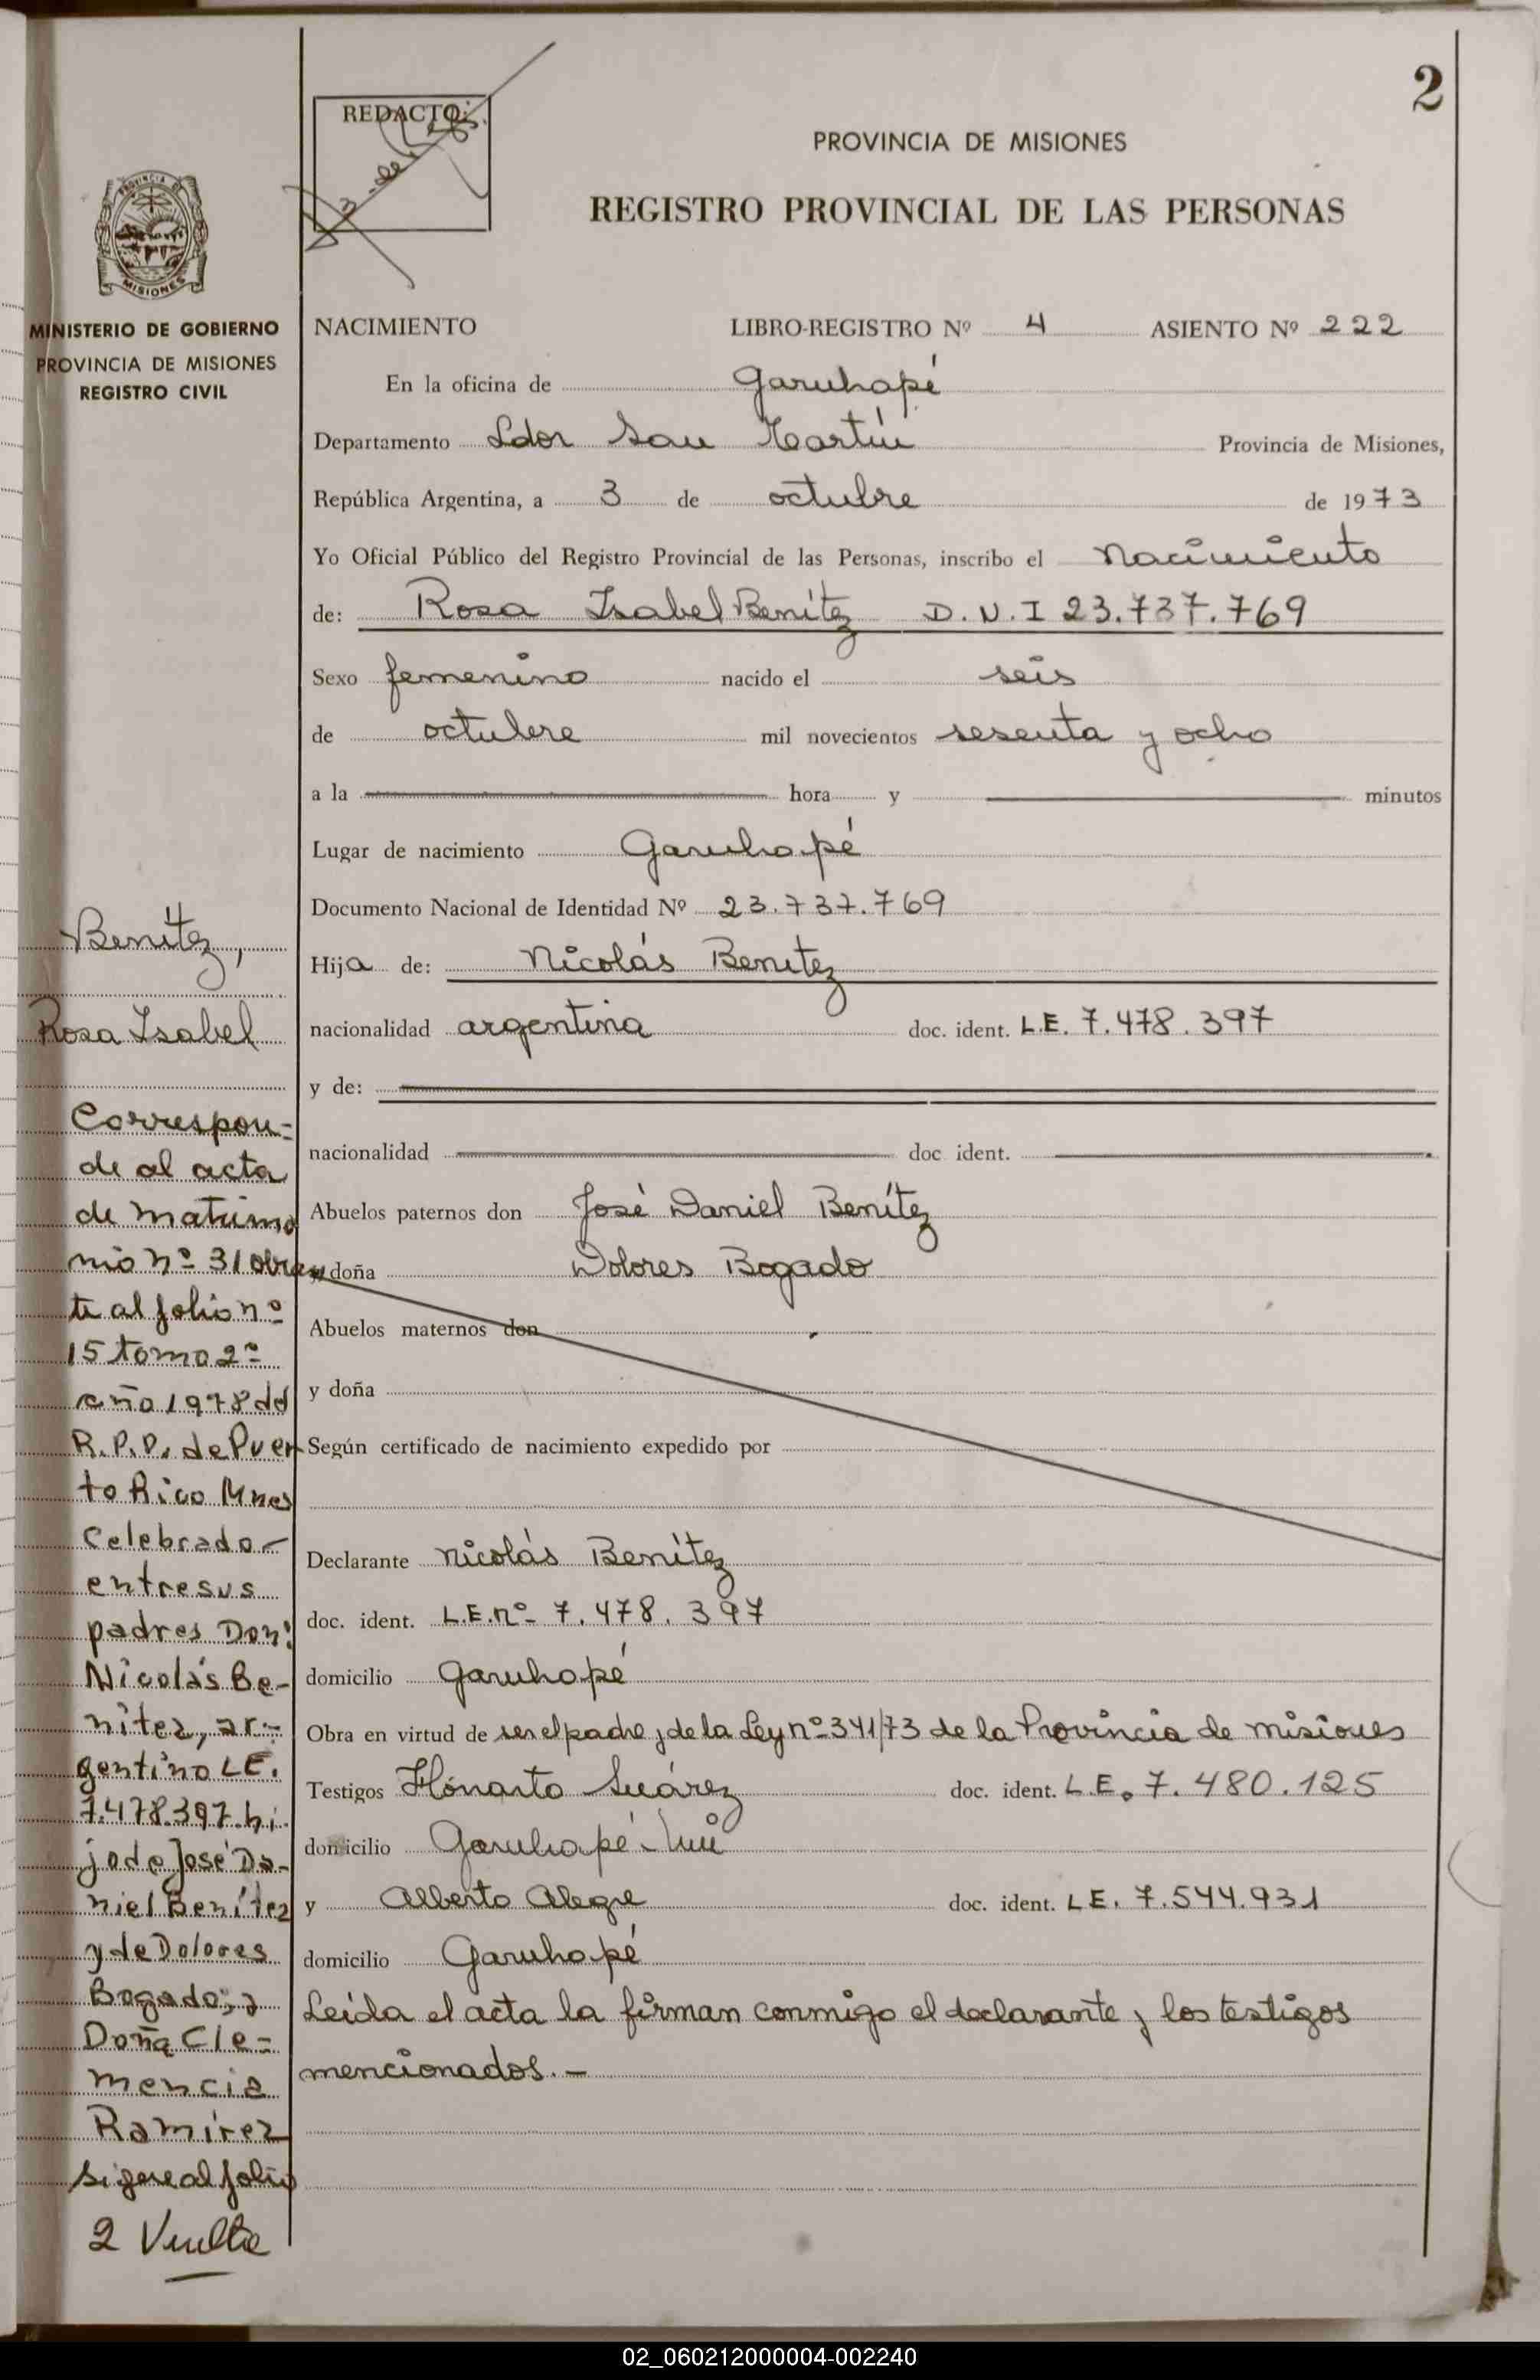 2
REDACTO:
PROVINCIA DE MISIONES
REGISTRO PROVINCIAL DE LAS PERSONAS
PROVINCIA DE
MISIONES
MINISTERIO DE GOBIERNO
PROVINCIA DE MISIONES
REGISTRO CIVIL
NACIMIENTO LIBRO-REGISTRO Nº 4 ASIENTO Nº 222
En la oficina de Garuhapé
Departamento Ldor San Martín Provincia de Misiones,
República Argentina, a 3 de octubre de 1973
Yo Oficial Público del Registro Provincial de las Personas, inscribo el nacimiento
de: Rosa Isabel Benítez D.N.I 23.737.769
Sexo femenino nacido el seis
de octubre mil novecientos sesenta y ocho
a la hora y minutos
Lugar de nacimiento Garuhapé
Documento Nacional de Identidad Nº 23.737.769
Hija de: Nicolás Benítez
nacionalidad argentina doc. ident. L.E. 7.478.397
y de:
nacionalidad doc ident.
Abuelos paternos don José Daniel Benítez
y doña Dolores Bogado
Abuelos maternos don
y doña
Según certificado de nacimiento expedido por
Declarante Nicolás Benítez
doc. ident. L.E. nº 7.478.397
domicilio Garuhapé
Obra en virtud de ser el padre y de la Ley nº 341/73 de la Provincia de Misiones
Testigos Suárez doc. ident. L.E. 7.480.125
domicilio Garuhapé-Miní
y Alberto Alegre doc. ident. LE. 7.544.931
domicilio Garuhapé
Leída el acta la firman conmigo el declarante y los testigos
mencionados.-
Benítez,
Rosa Isabel
Correspon=
de al acta
de matrimo
nio nº 31 obran
te al folio nº
15 tomo 2º
año 1978 del
R.P.P. de Puer
to Rico Mnes
Celebrado-
entre sus
padres Don:
Nicolás Be-
nítez, ar-
gentino LE.
7.478.397. hi
jo de José Da-
niel Benítez
y de Dolores
Bogado; y
Doña Cle=
mencia
Ramírez
sigue al folio
2 Vuelta
02_060212000004-002240